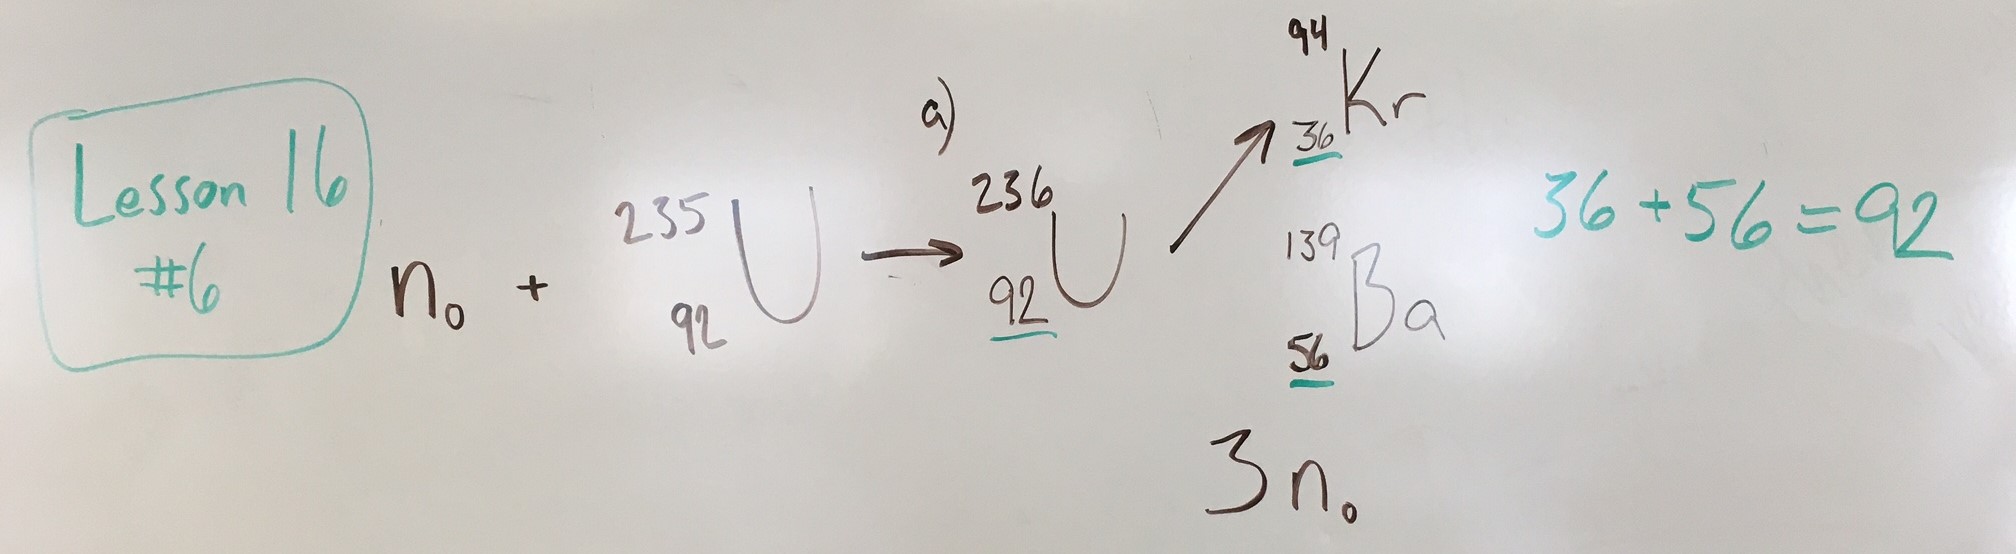 Lesson 16
#6
n₀ + ²³⁵₉₂U → a) ²³⁶₉₂U ↗ ⁹⁴₃₆Kr
¹³⁹₅₆Ba
3n₀
36+56=92